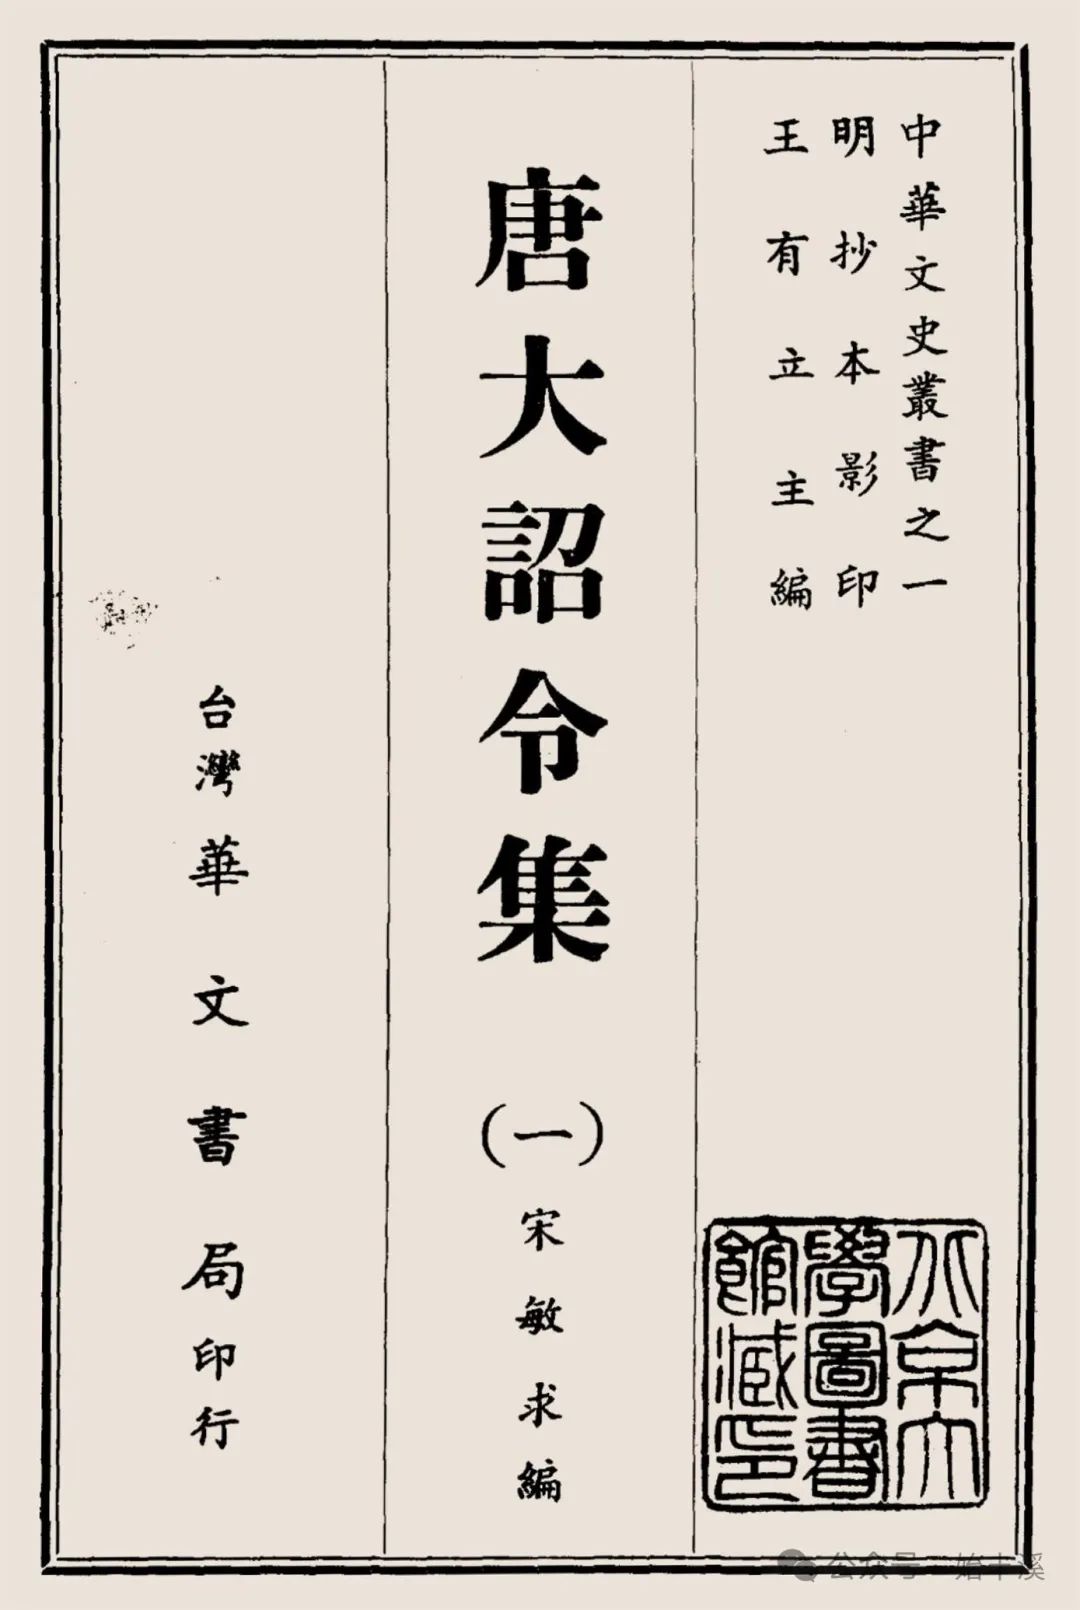 中華文史叢書之一
明抄本影印
王有立主編
唐大詔令集
(一)
宋敏求編
台灣華文書局印行
北京大
學圖書
館藏印
公众号